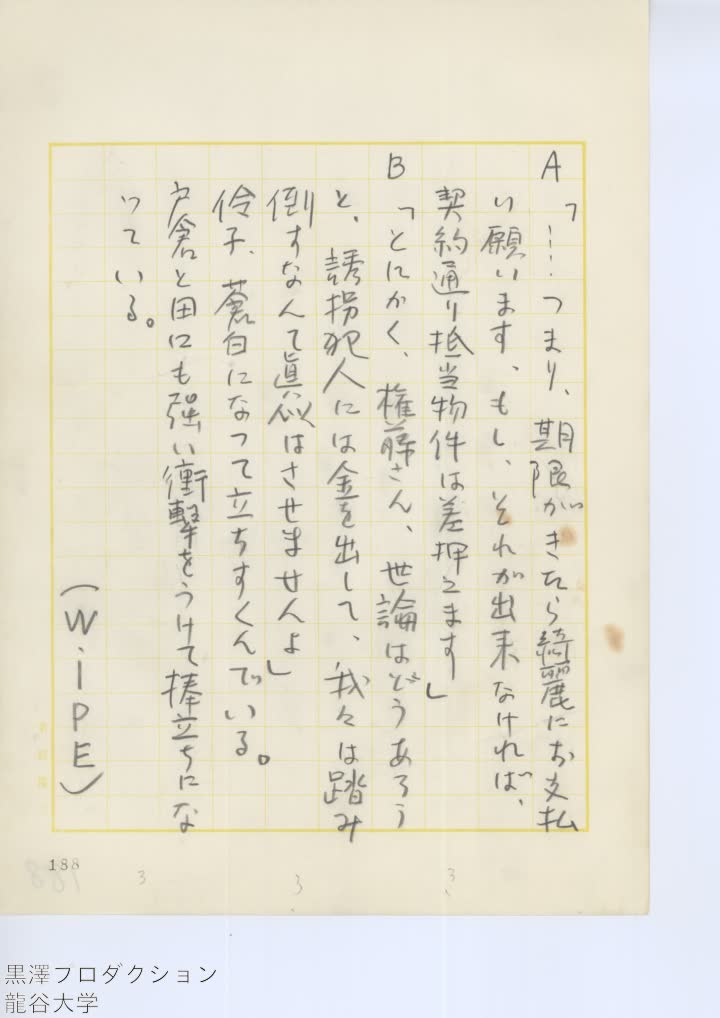 A「……つまり、期限がきたら綺麗にお支払
い願います、もし、それが出来なければ、
契約通り抵当物件は差押えます」
B「とにかく、権藤さん、世論はどうあろう
と、誘拐犯人には金を出して、我々は踏み
倒すなんて眞似はさせませんよ」
伶子、蒼白になって立ちすくんでいる。
戸倉と田口も強い衝撃をうけて棒立ちにな
っている。
(WiPE)
188
黒澤プロダクション
龍谷大学